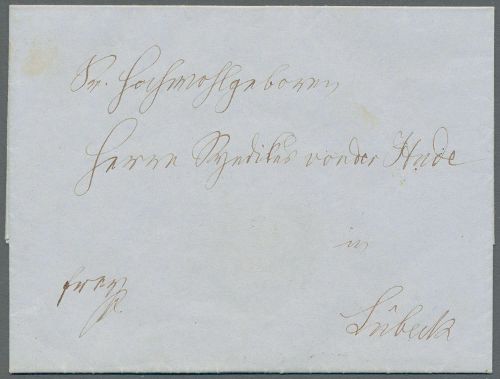 Sr. Hochwohlgeboren
Herrn Syndikus von der Hude
in
frey
Lübeck